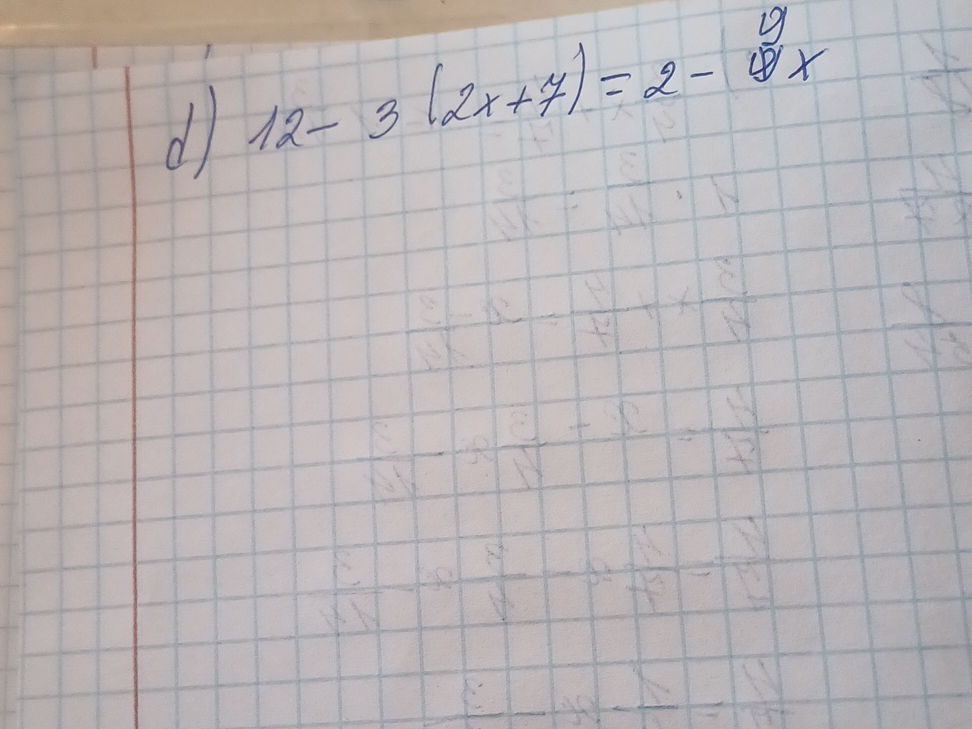 d) 12 - 3 (2x+7) = 2 - 9x